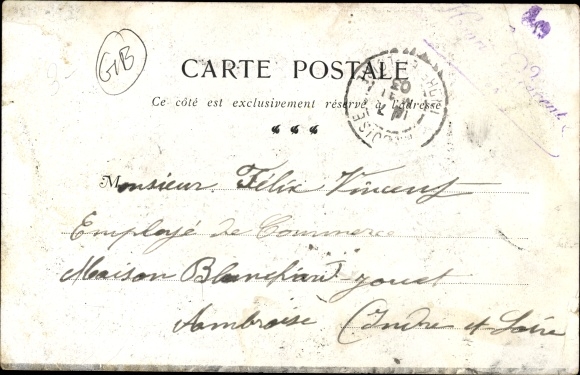 GIB
CARTE POSTALE
Ce côté est exclusivement réservé à l'adresse
03
Monsieur Félix Vincent
Employé de Commerce
Maison Blanchard
Amboise (Indre et Loire